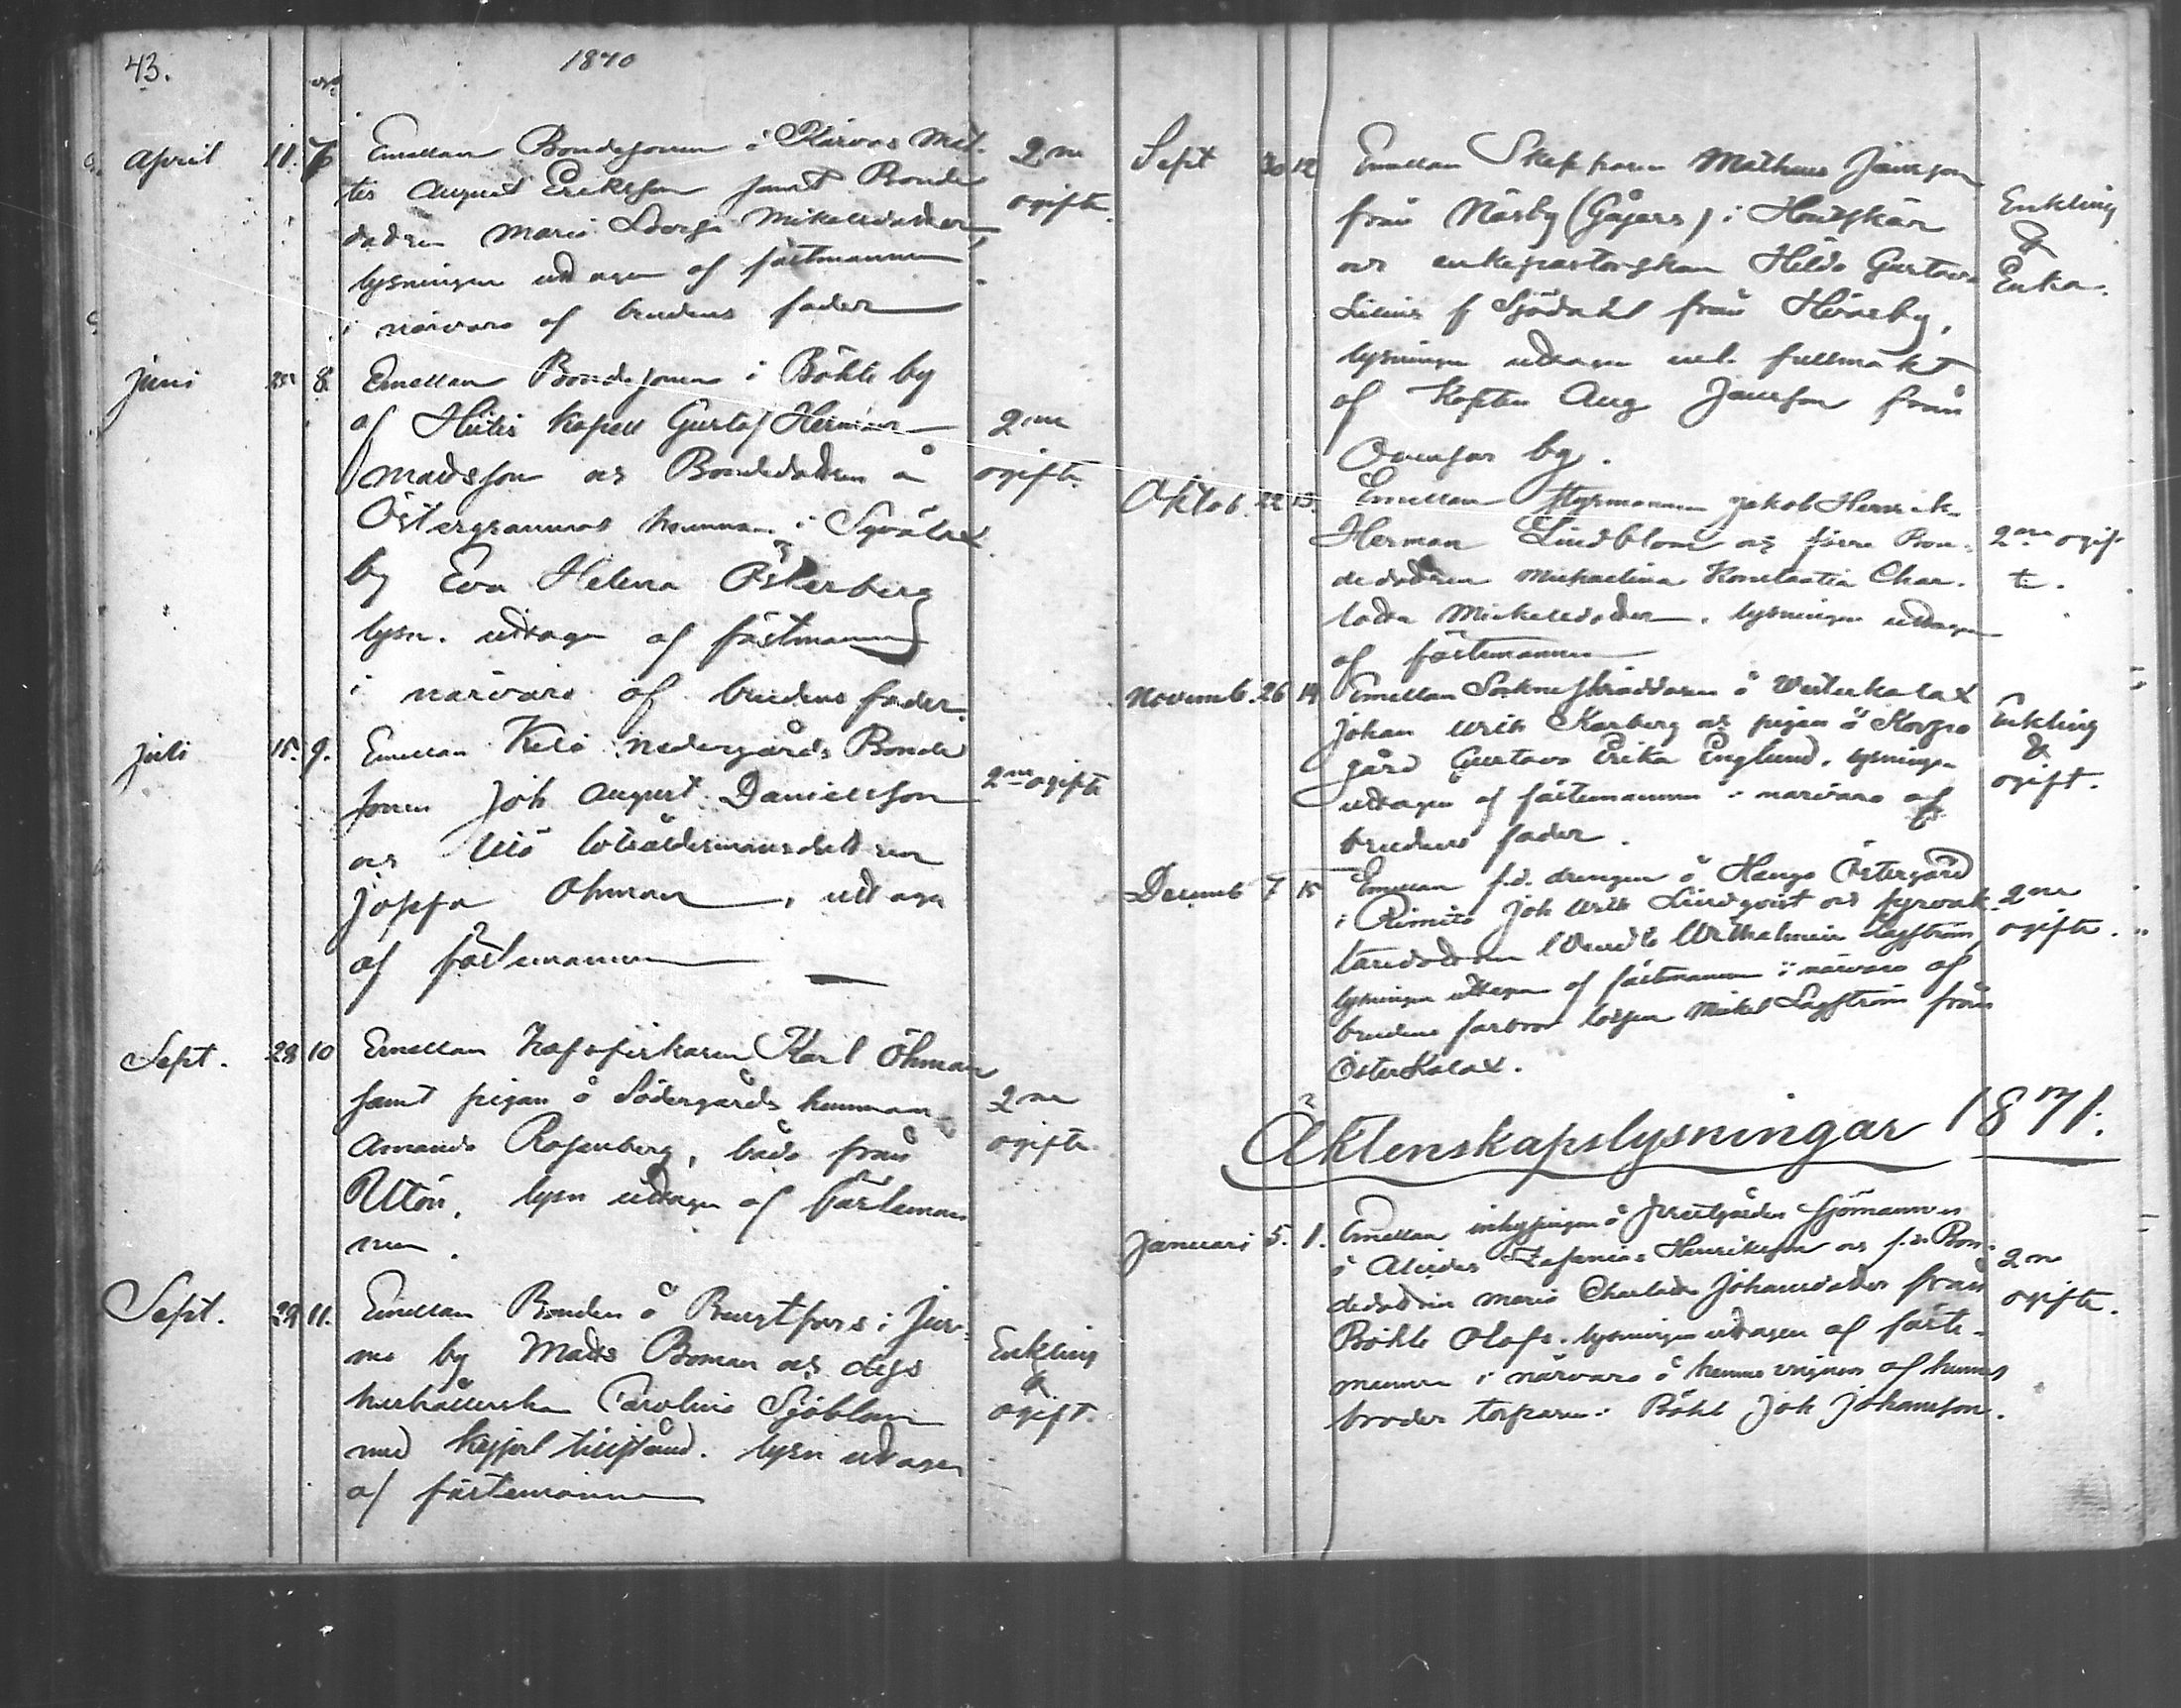 43.
1870
No
April 11. 7 Emellan Bondesonen i Kärvas Mat-
ts August Eriksson samt Bonde
dottren Maria Lovisa Mikelsdotter,
lysningen uttagen af fästmannen
i närvaro af brudens fader
2ne
ogifta.
Juni 25 8. Emellan Bondesonen i Böhle by
af Hitis kapell Gustaf Herman
Madsson och Bondedottren å
Östergrannas hemman i
by Eva Helena Österberg
lysn. uttagen af fästmannen
i närvaro af brudens fader.
2ne
ogifta.
Juli 15. 9. Emellan Nedergårds Bonde
sonen Joh August Danielsson
och Utö lotsåldermansdottren
Josefa Öhman, uttagen
af fästemannen
2ne ogifta
Sept. 28 10 Emellan Karl Öhman
samt pigan å Södergårds hemman
Amanda Rosenberg, båda från
Utön. lysn uttagen af fästeman
nen.
2ne
ogifta
Sept. 29 11. Emellan Bonden å i Jur-
mo by Matts Boman och dess
hushållerska Carolina Sjöblom
med tillstånd. lysn uttagen
af fästemannen
Enkling
&
ogift.
Sept 30 12 Emellan Skepparen Matheus Jansson
från Näsby (Gåsars) i Houtskär
och enkepastorskan Hilda Gustava
f Sjödahl från
lysningen uttagen enl. fullmakt
af Aug Jansson från
by.
Enkling
&
Enka.
Oktob. 22 13. Emellan styrmannen Jakob Henrik
Herman Lindblom och förre Bon-
dedottren Michaelina Konstantia Char-
lotta Mickelsdotter. lysningen uttagen
af fästemannen
2ne ogif-
ta.
Novemb. 26 14 Emellan Sockneskräddaren å Westerkalax
Johan Wilh Karberg och pigan å Korpo
gård Gustava Erika Englund. lysningen
uttagen af fästemannen i närvaro af
brudens fader.
Enkling
&
ogift.
Decemb 7 15 Emellan f.d. drengen å Hango Östergård
i Rimito Joh Wilh Lindqvist och fyrvak-
taredottren Wendla Wilhelmina Lagström,
lysningen uttagen af fästmannen i närvaro af
brudens farbror lotsen Mikel Lagström från
Österkalax.
2ne
ogifta.
Äktenskapslysningar 1871.
Januari 5. 1. Emellan inhysingen å sjömannen
Zefanias Henriksson och f.d. Bon-
dedottren Maria Charlotta Johansdotter från
Böhle Olofs. lysningen uttagen af fäste-
mannen i närvaro å hennes vägnar af hennes
broder torparen i Böhl Joh Johansson.
2ne
ogifta.